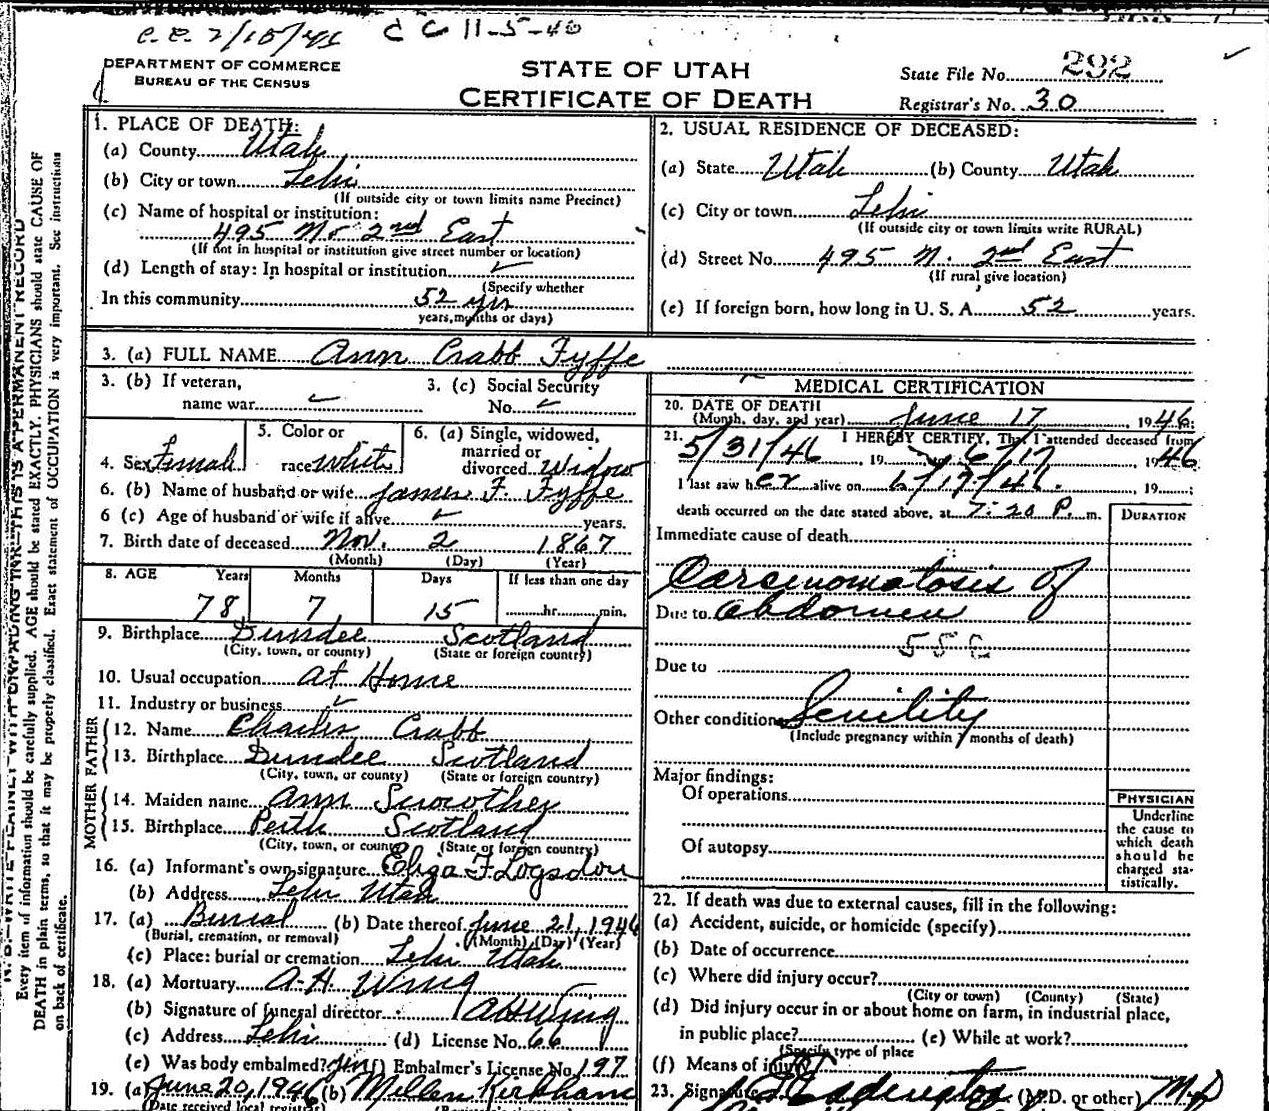 C C 11-5-46
DEPARTMENT OF COMMERCE
BUREAU OF THE CENSUS
STATE OF UTAH
CERTIFICATE OF DEATH
State File No. 292
Registrar's No. 30
1. PLACE OF DEATH:
(a) County Utah
(b) City or town Lehi
(If outside city or town limits name Precinct)
(c) Name of hospital or institution:
495 No 2nd East
(If not in hospital or institution give street number or location)
(d) Length of stay: In hospital or institution ✓
(Specify whether
In this community 52 yrs
years, months or days)
2. USUAL RESIDENCE OF DECEASED:
(a) State Utah (b) County Utah
(c) City or town Lehi
(If outside city or town limits write RURAL)
(d) Street No. 495 N. 2nd East
(If rural give location)
(e) If foreign born, how long in U. S. A. 52 years.
3. (a) FULL NAME Ann Crabb Fyffe
3. (b) If veteran,
name war ✓
3. (c) Social Security
No. ✓
4. Sex Female
5. Color or
race white
6. (a) Single, widowed,
married or
divorced Widow
6. (b) Name of husband or wife James F. Fyffe
6 (c) Age of husband or wife if alive ✓ years.
7. Birth date of deceased Nov. 2 1867
(Month) (Day) (Year)
8. AGE Years Months Days If less than one day
78 7 15 hr. min.
9. Birthplace Dundee Scotland
(City, town, or county) (State or foreign country)
10. Usual occupation At Home
11. Industry or business ✓
FATHER
12. Name Charles Crabb
13. Birthplace Dundee Scotland
(City, town, or county) (State or foreign country)
MOTHER
14. Maiden name Ann
15. Birthplace Perth Scotland
(City, town, or county) (State or foreign country)
16. (a) Informant's own signature Eliza F Logsdon
(b) Address Lehi Utah
17. (a) Burial (b) Date thereof June 21, 1946
(Burial, cremation, or removal) (Month) (Day) (Year)
(c) Place: burial or cremation Lehi Utah
18. (a) Mortuary A. H. Wing
(b) Signature of funeral director A H Wing
(c) Address Lehi (d) License No. 66
(e) Was body embalmed? Yes (f) Embalmer's License No. 197
19. (a) June 20, 1946 (b) Millen Kirkham
(Date received local registrar)
MEDICAL CERTIFICATION
20. DATE OF DEATH
(Month, day, and year) June 17, 1946.
21. I HEREBY CERTIFY, That I attended deceased from
5/31/46, 19 to 6/17 1946
I last saw her alive on 6/17/46, 19
death occurred on the date stated above, at 7:20 P. m.
DURATION
Immediate cause of death
Carsinomatosis of
Due to abdomen
55E
Due to
Other conditions Senility
(Include pregnancy within 3 months of death)
Major findings:
Of operations
Of autopsy
PHYSICIAN
Underline
the cause to
which death
should be
charged sta-
tistically.
22. If death was due to external causes, fill in the following:
(a) Accident, suicide, or homicide (specify)
(b) Date of occurrence
(c) Where did injury occur?
(City or town) (County) (State)
(d) Did injury occur in or about home on farm, in industrial place,
in public place? (e) While at work?
(Specify type of place
(f) Means of injury
23. Signature (M.D. or other) M.D
Every item of information should be carefully supplied. AGE should be stated EXACTLY. PHYSICIANS should state CAUSE OF
DEATH in plain terms, so that it may be properly classified. Exact statement of OCCUPATION is very important. See instructions
on back of certificate.